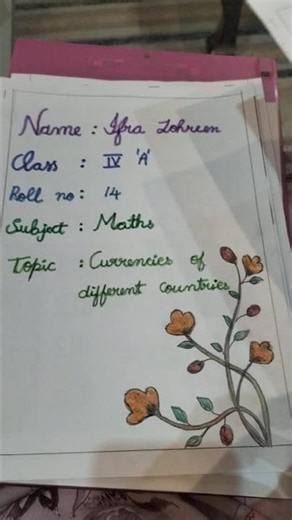 Name : Ifra Zohreen
Class : IV 'A'
Roll no : 14
Subject : Maths
Topic : Currencies of
different countries